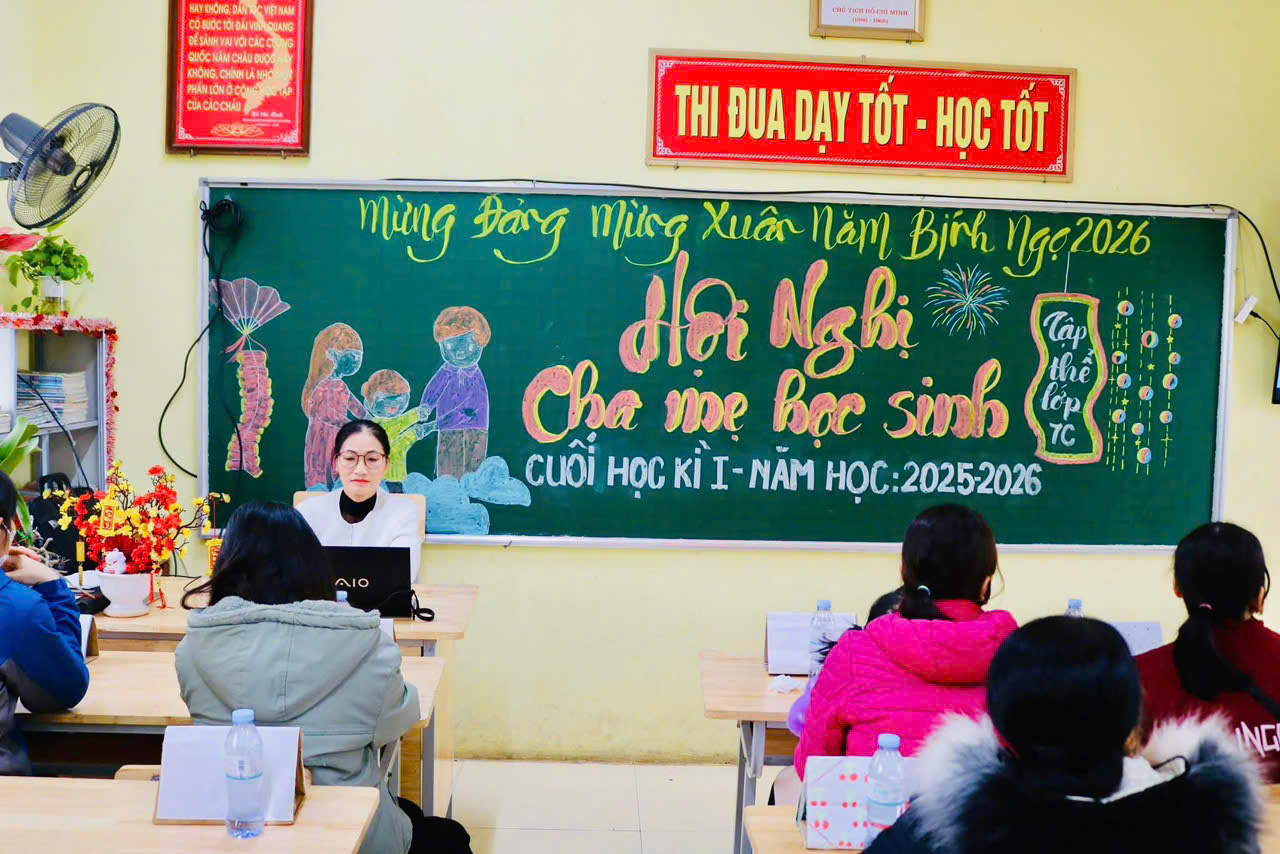 HAY KHÔNG, DÂN TỘC VIỆT NAM
CÓ BƯỚC TỚI ĐÀI VINH QUANG
ĐỂ SÁNH VAI VỚI CÁC CƯỜNG
QUỐC NĂM CHÂU ĐƯỢC HAY
KHÔNG, CHÍNH LÀ NHỜ MỘT
PHẦN LỚN Ở CÔNG HỌC TẬP
CỦA CÁC CHÁU
CHỦ TỊCH HỒ CHÍ MINH
THI ĐUA DẠY TỐT - HỌC TỐT
Mừng Đảng Mừng Xuân Năm Bính Ngọ 2026
Hội Nghị
Cha mẹ học sinh
CUỐI HỌC KÌ I - NĂM HỌC: 2025-2026
Tập
thể
lớp
7C
VAIO